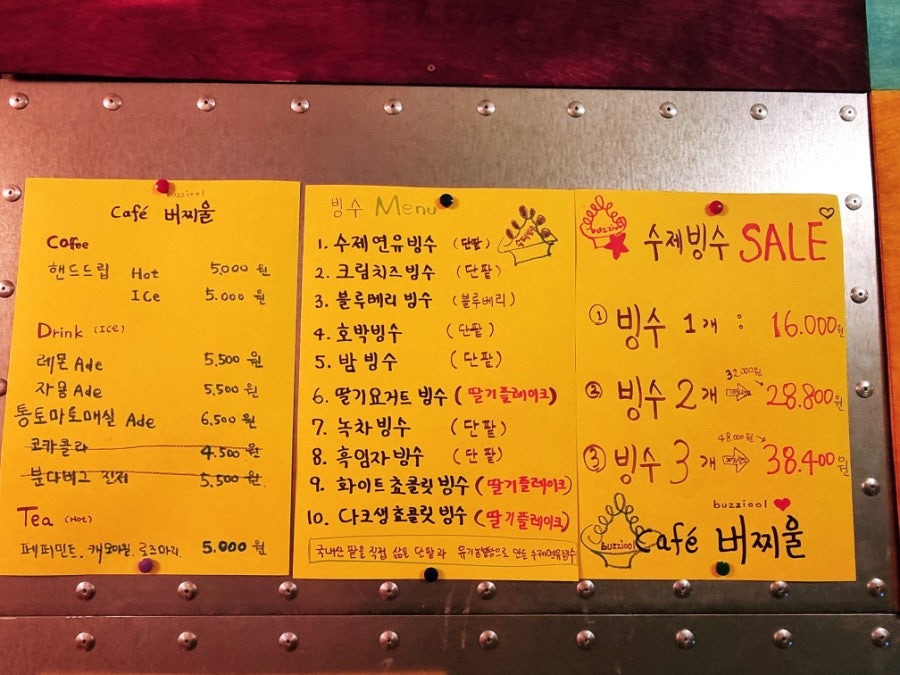 buzziool
Café 버찌울
Coffee
핸드드립 Hot 5,000 원
ICe 5.000 원
Drink (ICe)
레몬 Ade 5,500 원
자몽 Ade 5,500 원
통토마토매실 Ade 6,500 원
코카콜라 4,500 원
분다버그 진저 5,500 원
Tea (Hot)
페퍼민트. 캐모마일. 로즈마리. 5.000 원
빙수 Menu
수제빙수
1. 수제연유빙수 (단팥)
2. 크림치즈빙수 (단팥)
3. 블루베리 빙수 (블루베리)
4. 호박빙수 (단팥)
5. 밤 빙수 (단팥)
6. 딸기요거트 빙수 (딸기플레이크)
7. 녹차빙수 (단팥)
8. 흑임자빙수 (단팥)
9. 화이트 쵸콜릿 빙수 (딸기플레이크)
10. 다크생쵸콜릿 빙수 (딸기플레이크)
국내산 팥을 직접 삶은 단팥과 유기농설탕으로 만든 수제연유빙수
buzziool
수제빙수 SALE
① 빙수 1개 : 16.000원
② 빙수 2개 32,000원 28.800원
③ 빙수 3개 48.000원 38.400원
buzziool
buzziool
Café 버찌울